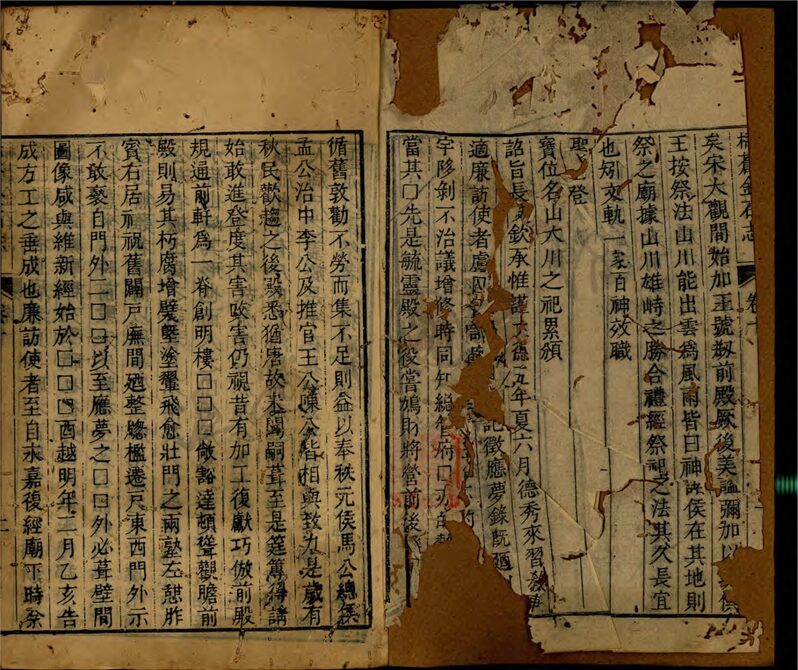 栝蒼金石志 卷十
矣宋大觀間始加王號刱前殿厥後美謚彌加以侯
王按祭法山川能出雲為風雨皆曰神諸侯在其地則
祭之廟據山川雄峙之勝合禮經祭祀之法其久長宜
也矧文軌一家百神效職
聖登
寶位名山大川之祀累頒
詔旨長欽承惟謹大德五年夏六月德秀來習教事
適廉訪使者慮囚記徵應夢錄既廼
宇陊剝不治議增修時同知總管府□
當其□先是毓靈殿之役嘗鳩財將營前後
循舊敦勸不勞而集不足則益以奉秩元侯馬公總僕
孟公治中李公及推官王公陳公皆相與致力是歲有
秋民歡趨之後殿悉猶唐故宋闕嗣葺至是筳篿得請
始敢進登度其害改害仍視昔有加工復獻巧倣前殿
規通前軒為一脊創明樓□□□敞豁達頓聳觀瞻前
殿則易其朽腐增甓墍塗翬飛愈壯門之兩塾左憩胙
賓右居祠祝舊闢戶廡間廼整牕檻遷戶東西門外示
不敢褻自門外二□□以至應夢之□□外必葺壁間
圖像咸與維新經始於□□□酉越明年二月乙亥告
成方工之垂成也廉訪使者至自永嘉復經廟下時祭